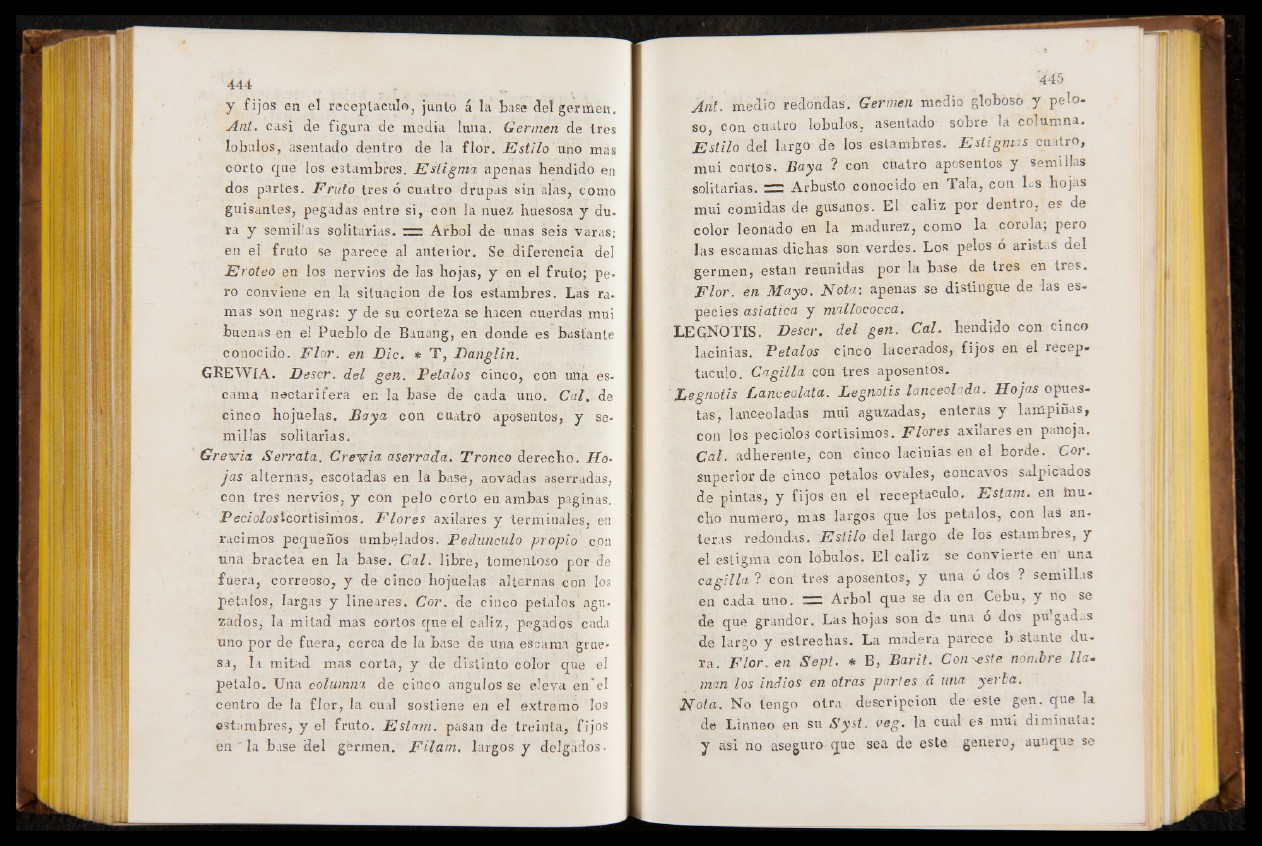 444
y fijos en el receptaculo, junto á la base del germen.
Ant. casi de figura de media luna. Germen de tres
lobulos, asentado dentro de la flor. Estilo uno mas
corto que los estambres. Estigma apenas hendido en
dos partes. Fruto tres ó cuatro drupas sin alas, como
guisantes, pegadas entre si, con la nuez huesosa y du-
ra y semillas solitarias. = Arbol de unas seis varas;
en el fruto se parece al anterior. Se diferencia del
Eroteo en los nervios de las hojas, y en el fruto; pe-
ro conviene en la situacion de los estambres. Las ra-
mas son negras: y de su corteza se hacen cuerdas mui
buenas en el Pueblo de Bauang, en donde es bastante
conocido. Flor. en Dic. * T, Danglin.
GREWIA. Descr. del gen. Petalos cinco, con una es-
cama nectarifera en la base de cada uno. Cal. de
cinco hojuelas. Baya con cuatro aposentos, y se-
millas solitarias.
Grewia Serrata. Crewia aserrada. Tronco derecho. Ho-
jas alternas, escotadas en la base, aovadas aserradas,
con tres nervios, y con pelo corto en ambas paginas.
Peciolos cortisimos. Flores axilares y terminales, en
racimos pequeños umbelados. Pedunculo propio con
una bractea en la base. Cal. libre, tomentoso por de
fuera, correoso, y de cinco hojuelas alternas con los
petalos, largas y lineares. Cor. de cinco petalos agu-
zados, la mitad mas cortos que el caliz, pegados cada
uno por de fuera, cerca de la base de una escama grue-
sa, la mitad mas corta, y de distinto color que el
petalo. Una columna de cinco angulos se eleva en el
centro de la flor, la cual sostiene en el extremo los
estambres, y el fruto. Estam. pasan de treinta, fijos
en la base del germen. Filam. largos y delgados.
445
Ant. medio redondas. Germen medio globoso y pelo-
so, con cuatro lobulos, asentado sobre la columna.
Estilo del largo de los estambres. Estigmas cuatro,
mui cortos. Baya ? con cuatro aposentos y semillas
solitarias. = Arbusto conocido en Tala, con las hojas
mui comidas de gusanos. El caliz por dentro, es de
color leonado en la madurez, como la corola; pero
las escamas dichas son verdes. Los pelos ó aristas del
germen, estan reunidas por la base de tres en tres.
Flor. en Mayo. Nota: apenas se distingue de las es-
pecies asiatica y mallococca.
LEGNOTIS. Descr. del gen. Cal. hendido con cinco
lacinias. Petalos cinco lacerados, fijos en el recep-
taculo. Cagilla con tres aposentos.
Legnotis Lanceolata. Legnotis lanceolada. Hojas opues-
tas, lanceoladas mui aguzadas, enteras y lampiñas,
con los peciolos cortisimos. Flores axilares en panoja.
Cal. adherente, con cinco lacinias en el borde. Cor.
superior de cinco petalos ovales, concavos salpicados
de pintas, y fijos en el receptaculo. Estam. en mu-
cho numero, mas largos que los petalos, con las an-
teras redondas. Estilo del largo de los estambres, y
el estigma con lobulos. El caliz se convierte en una
cagilla ? con tres aposentos, y una ó dos ? semillas
en cada uno. = Arbol que se da en Cebu, y no se
de que grandor. Las hojas son de una ó dos pulgadas
de largo y estrechas. La madera parece bastante du-
ra. Flor. en Sept. * B, Barit. Con este nombre lla-
man los indios en otras partes á una yerba.
Nota. No tengo otra descripcion de este gen. que la
de Linneo en su Syst. veg. la cual es mui diminuta:
y asi no aseguro que sea de este genero, aunque se